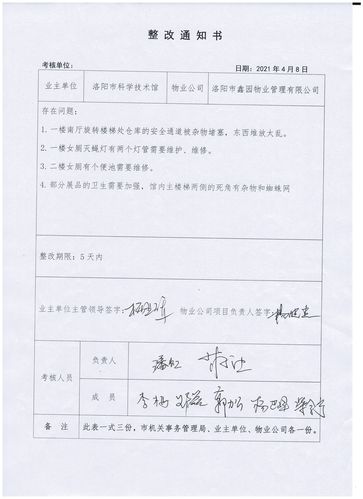 整改通知书
考核单位： 日期：2021年4月8日
业主单位 洛阳市科学技术馆 物业公司 洛阳市鑫园物业管理有限公司
存在问题：
1.一楼南厅旋转楼梯处仓库的安全通道被杂物堵塞，东西堆放大乱。
2.一楼女厕灭蝇灯有两个灯管需要维护、维修。
3.二楼女厕有个便池需要维修。
4.部分展品的卫生需要加强，馆内主楼梯两侧的死角有杂物和蜘蛛网
整改期限：5天内
业主单位主管领导签字： 物业公司项目负责人签字：
考核人员
负责人
成员
备 注 此表一式三份，市机关事务管理局、业主单位、物业公司各一份。